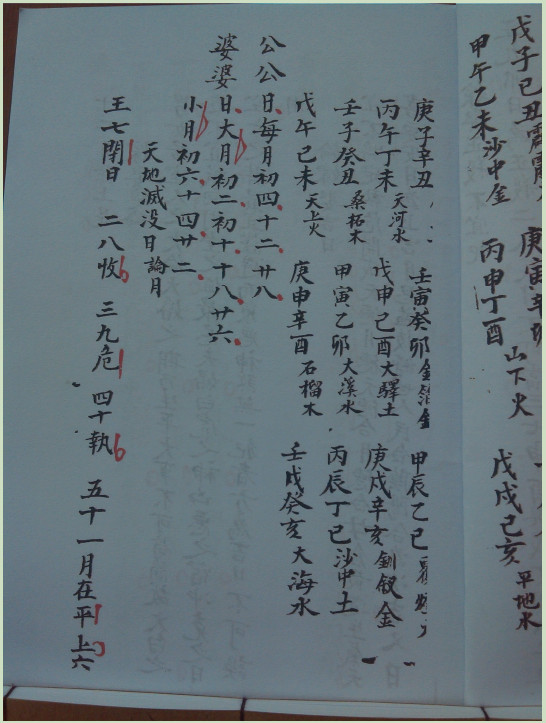 戊子己丑
甲午乙未沙中金
庚寅辛
丙申丁酉山下火
戊戌己亥平地水
庚子辛丑
壬寅癸卯金箔金
甲辰乙巳
丙午丁未天河水
戊申己酉大驛土
庚戌辛亥釧釵金
壬子癸丑桑柘木
甲寅乙卯大溪水
丙辰丁巳沙中土
戊午己未天上火
庚申辛酉石榴木
壬戌癸亥大海水
公公日每月初四十二廿八
婆婆日大月初二初十十八廿六
小月初六十四廿二
天地滅没日論月
王七閉日 二八收 三九危 四十執 五十一月在平上六